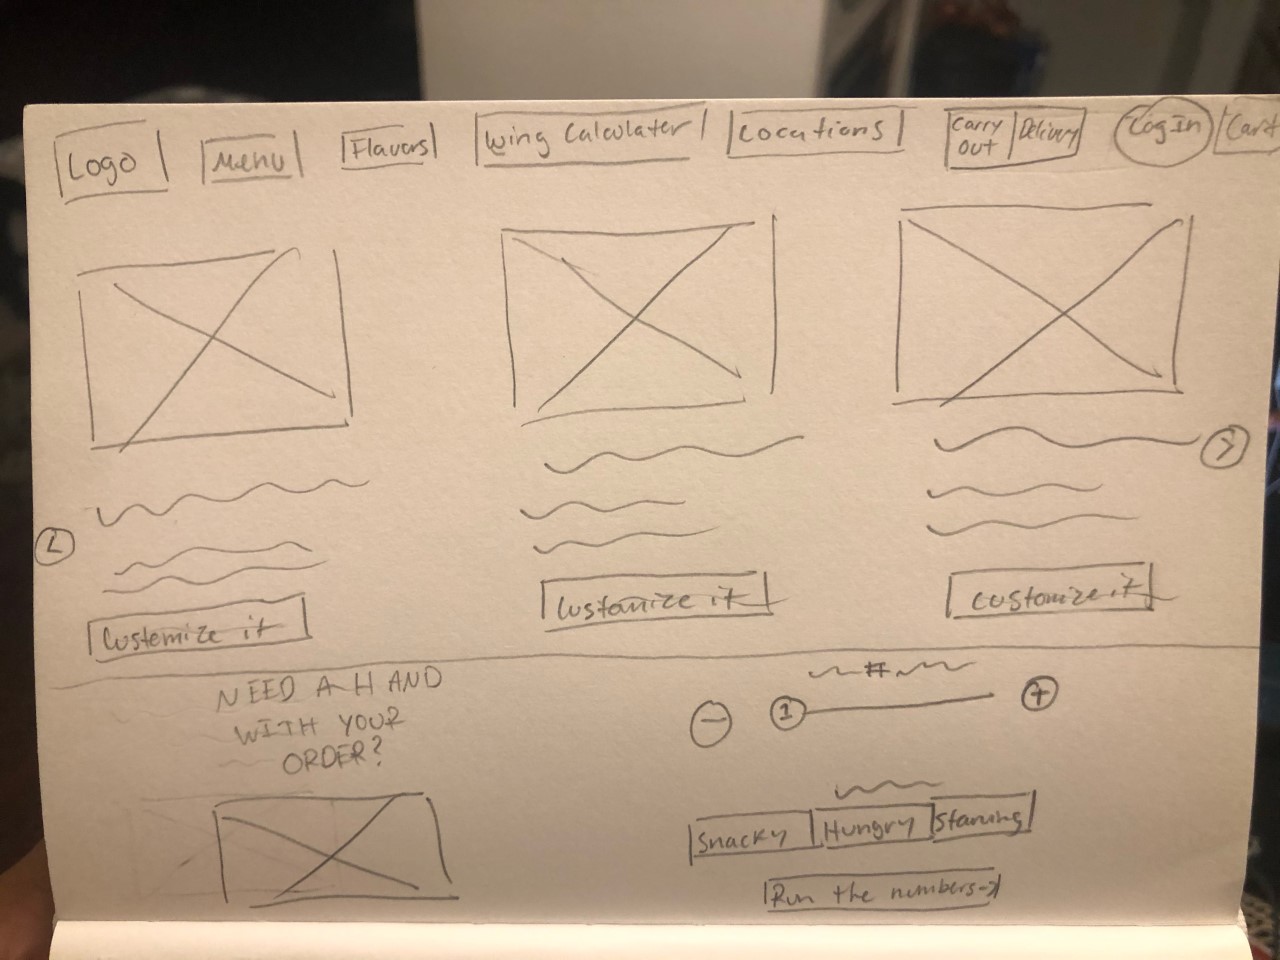 Logo
Menu
Flavors
Wing Calculater
Locations
Carry
out
Delivery
Log In
Cart
<
>
Custemize it
Customize it
customize it
NEED A HAND
WITH YOUR
ORDER?
#
− 1 +
Snacky Hungry Starving
Run the numbers→